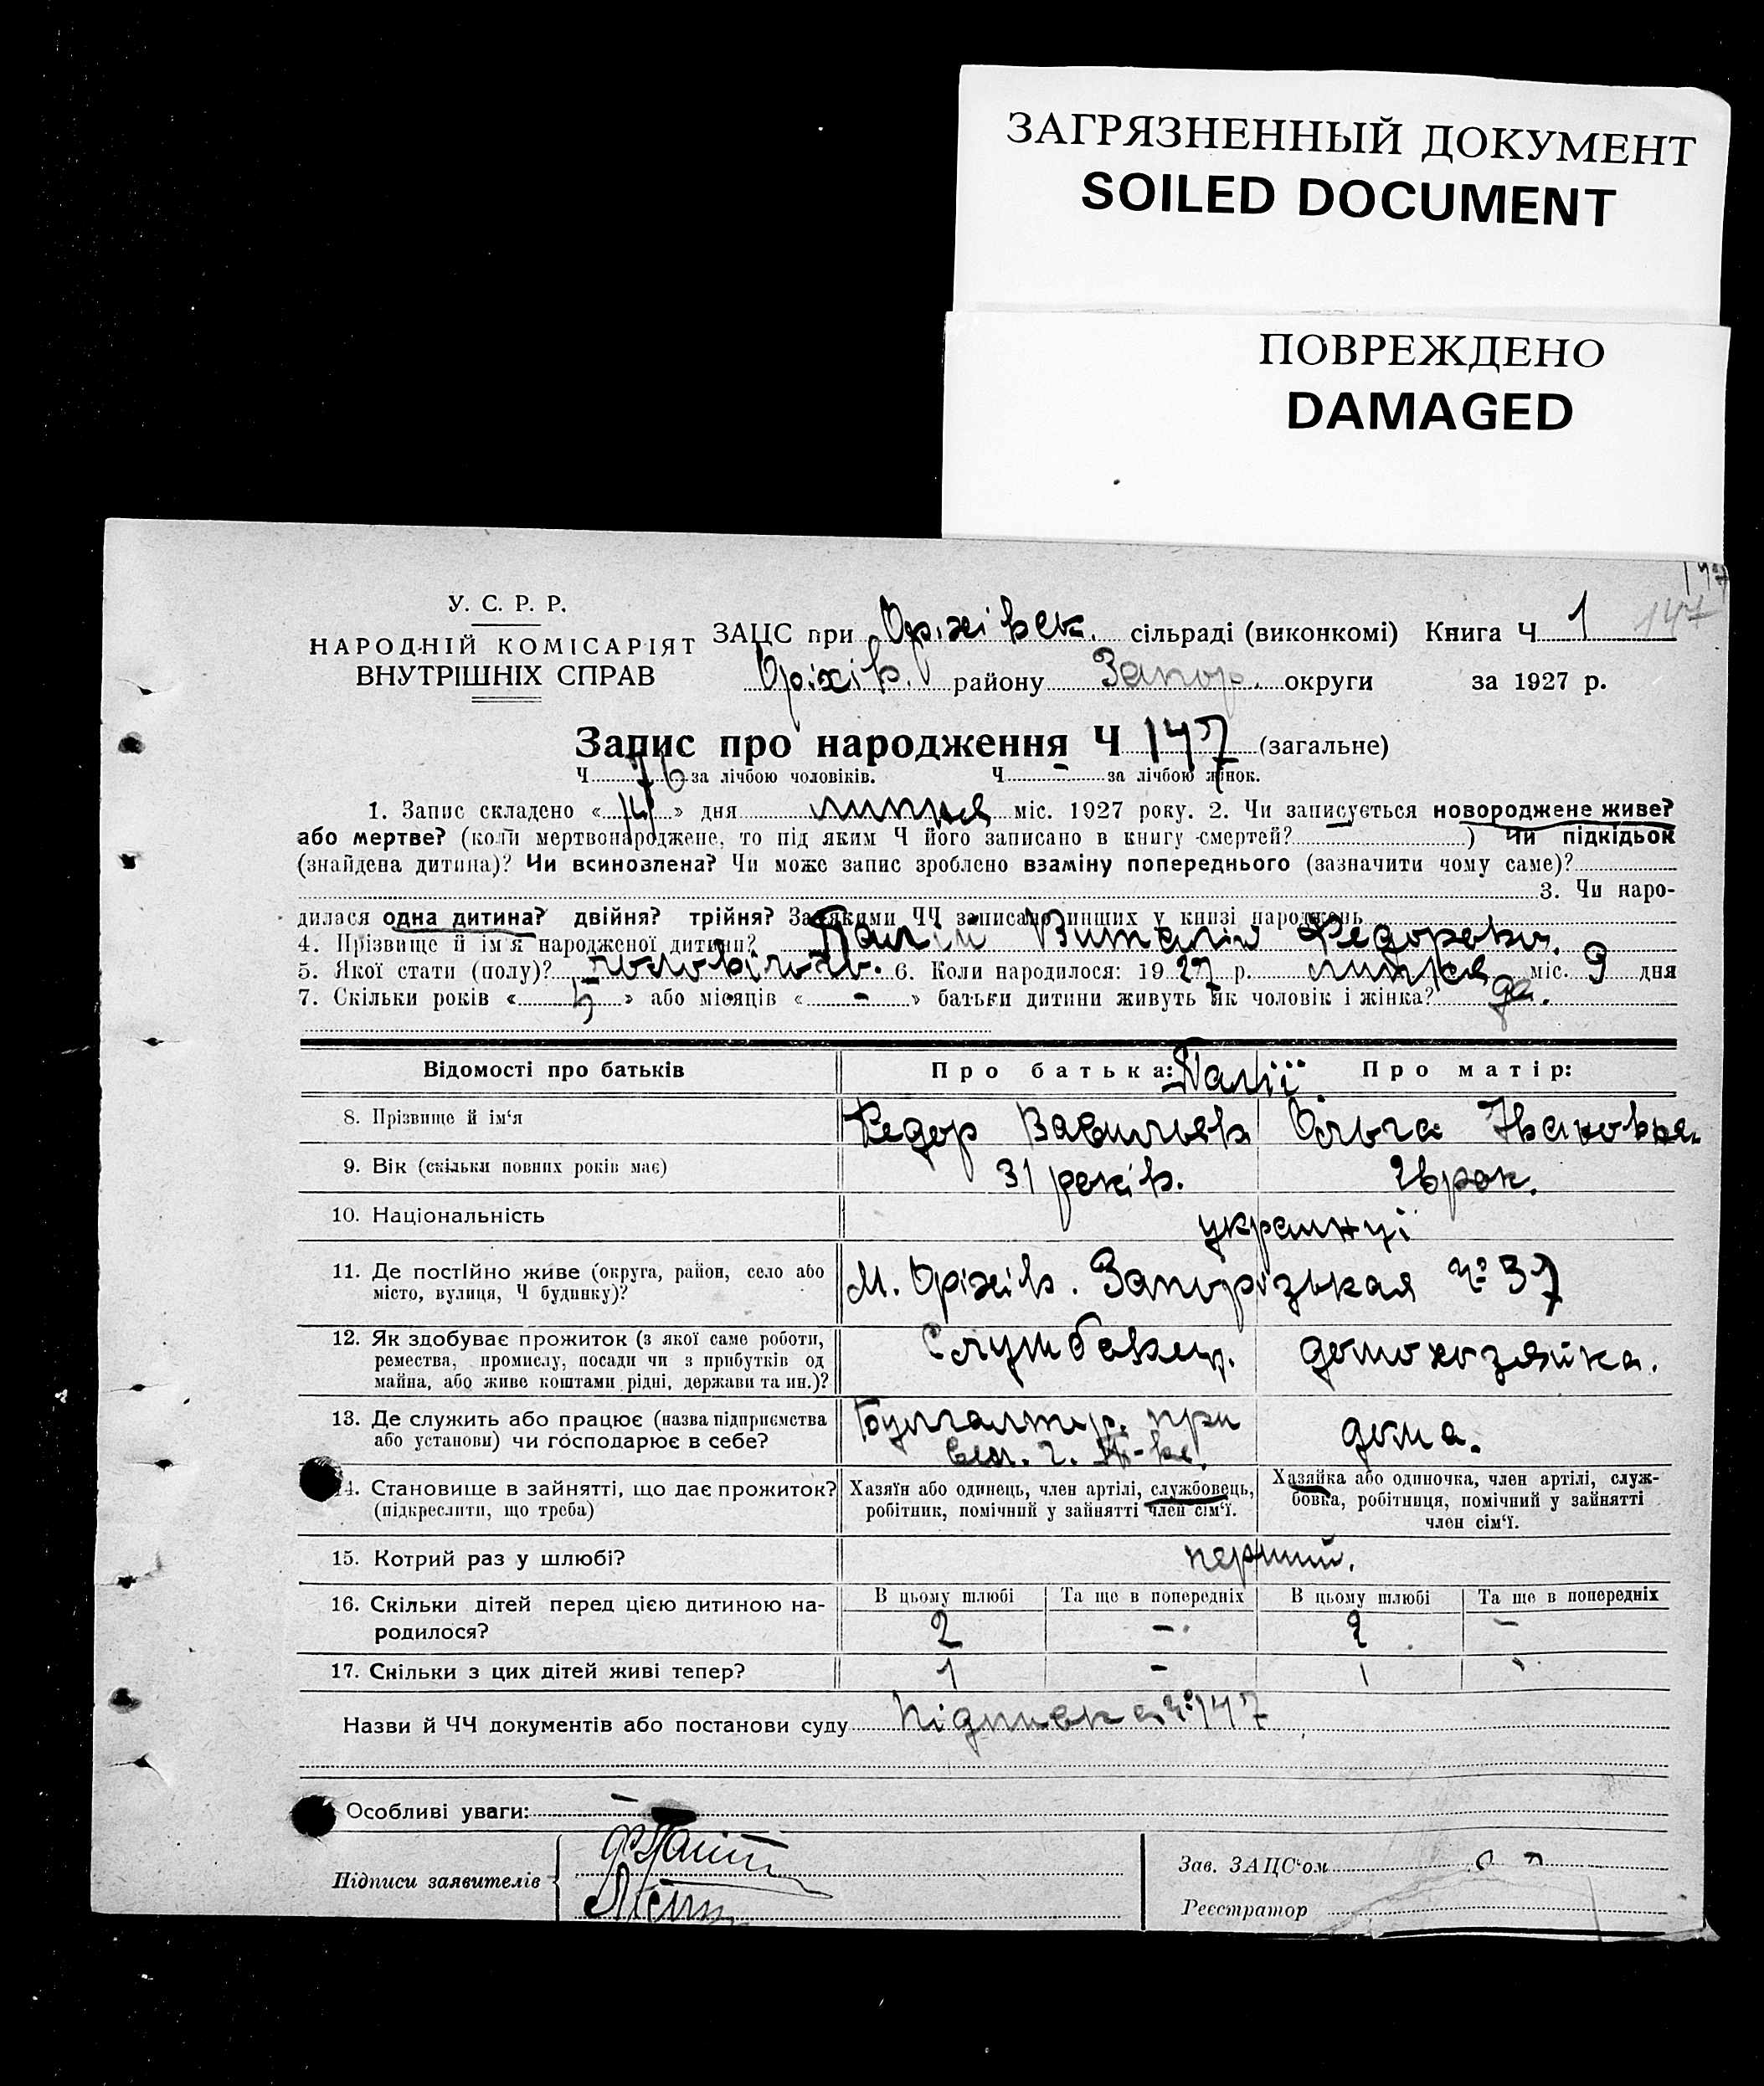 ЗАГРЯЗНЕННЫЙ ДОКУМЕНТ
SOILED DOCUMENT
ПОВРЕЖДЕНО
DAMAGED
147
147
У. С. Р. Р.
НАРОДНІЙ КОМІСАРІЯТ
ВНУТРІШНІХ СПРАВ
ЗАЦС при Оріхівськ. сільраді (виконкомі) Книга Ч 1
Оріхів. району Запор. округи за 1927 р.
Запис про народження Ч 147 (загальне)
Ч 76 за лічбою чоловіків. Ч - за лічбою жінок.
1. Запис складено «14» дня липня міс. 1927 року. 2. Чи записується новороджене живе?
або мертве? (коли мертвонароджене, то під яким Ч його записано в книгу смертей? ) Чи підкідьок
(знайдена дитина)? Чи всиновлена? Чи може запис зроблено взаміну попереднього (зазначити чому саме)?
3. Чи наро-
дилася одна дитина? двійня? трійня? За якими ЧЧ записано инших у книзі народжень
4. Прізвище й ім'я народженої дитини? Палій Виталій Федоров.
5. Якої стати (полу)? 6. Коли народилося: 1927 р. липня міс. 9 дня
7. Скільки років « 5 » або місяців « - » батьки дитини живуть як чоловік і жінка? да.
Відомості про батьків
Про батька: Палії Про матір:
8. Прізвище й ім'я Федор Васильев Ольга Ивановна.
9. Вік (скільки повних років має) 31 років. 26 рок.
10. Національність украинці
11. Де постійно живе (округа, район, село або
місто, вулиця, Ч будинку)? М. Оріхів. Запорізькая № 37
12. Як здобуває прожиток (з якої саме роботи,
ремества, промислу, посади чи з прибутків од
майна, або живе коштами рідні, держави та ин.)? Службовец. домохозяйка.
13. Де служить або працює (назва підприємства
або установи) чи господарює в себе? Бухгалтер. при дома.
14. Становище в зайнятті, що дає прожиток?
(підкреслити, що треба)
Хазяїн або одинець, член артілі, службовець,
робітник, помічний у зайнятті член сім'ї.
Хазяйка або одиночка, член артілі, служ-
бовка, робітниця, помічний у зайнятті
член сім'ї.
15. Котрий раз у шлюбі? перший.
16. Скільки дітей перед цією дитиною на-
родилося?
В цьому шлюбі Та ще в попередніх В цьому шлюбі Та ще в попередніх
2 - 2 -
17. Скільки з цих дітей живі тепер? 1 - 1 -
Назви й ЧЧ документів або постанови суду Підписка № 147
Особливі уваги: -
Підписи заявителів
Зав. ЗАЦС'ом
Реєстратор